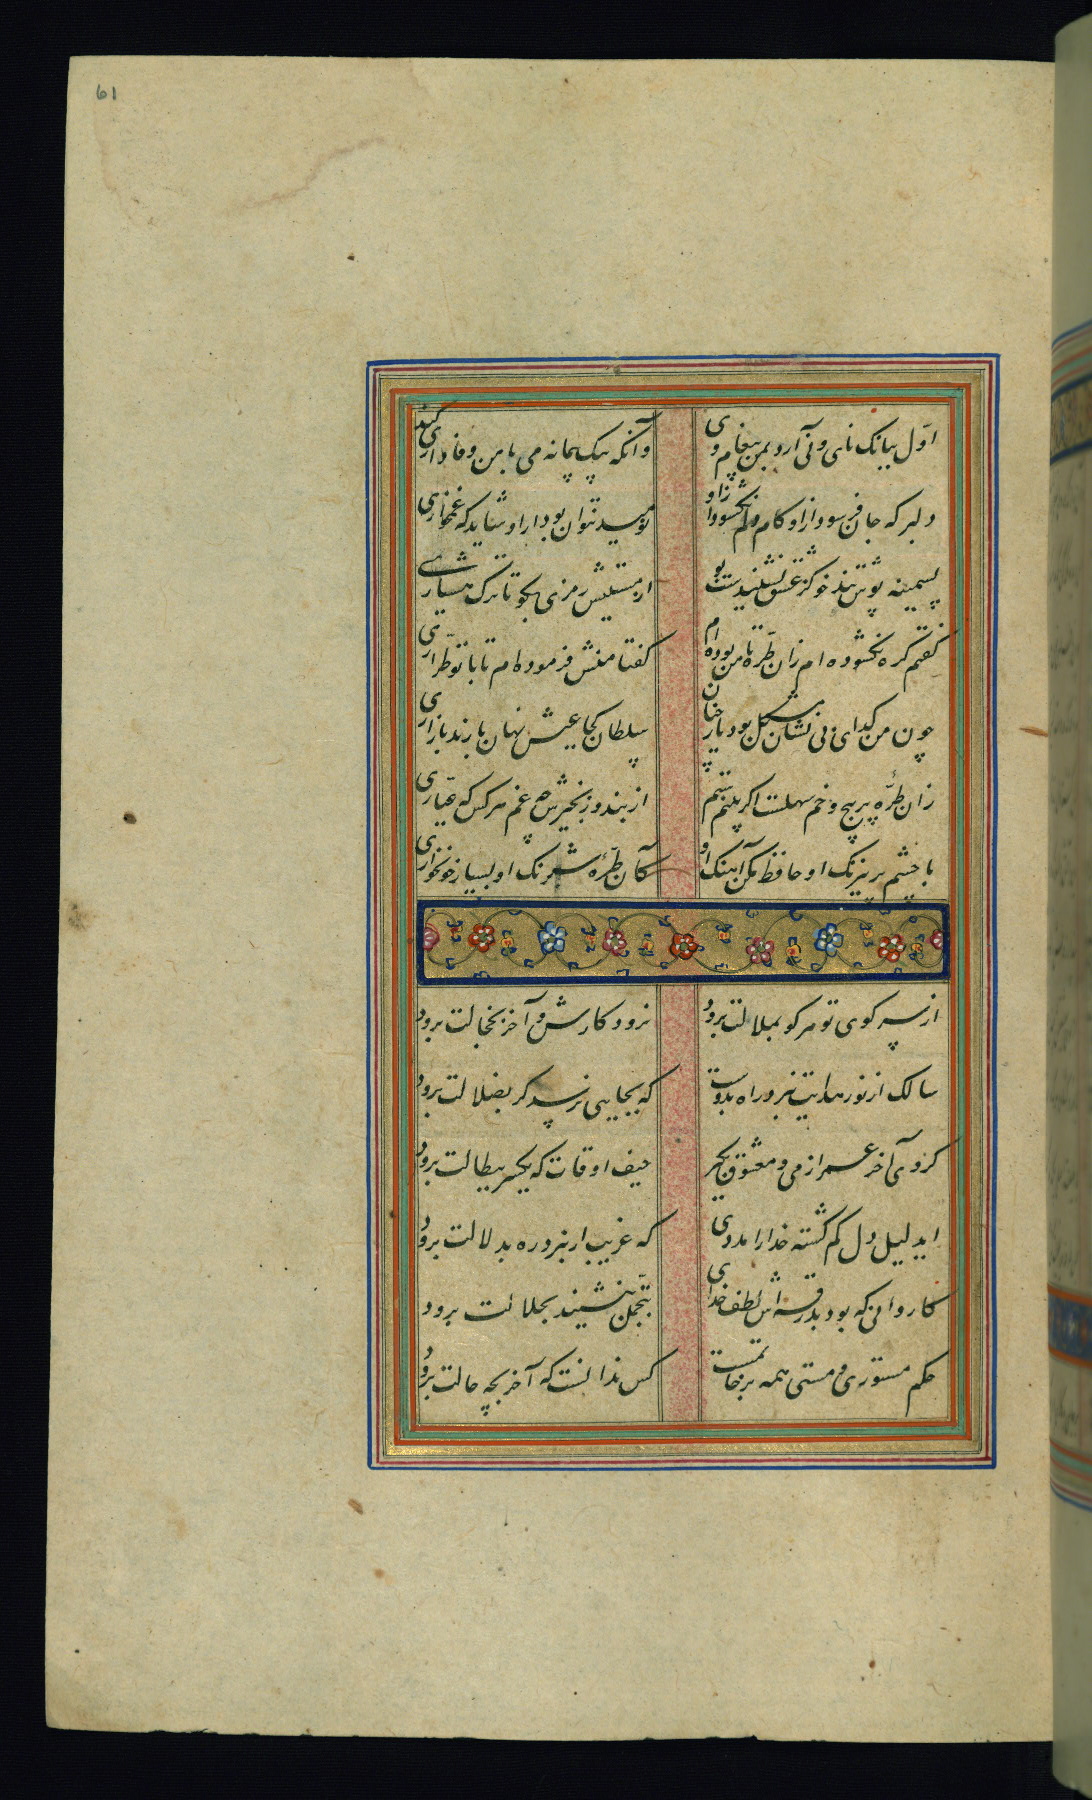 61
اول ببانک نای و نی آرد بمن پیغام وی
وآنکه بیک پیمانه می با من وفاداری کند
دلبر که جان فرسود ازو کام دلم نکشود ازو
نومید نتوان بود ازاو شاید که غمخواری
پشمینه پوش تندخو کز عشق نشنیدست بو
از مستیش رمزی بکو تا ترک هشیاری
کفتم کره نکشوده ام زان طره تا من بوده ام
کفتا منش فرموده ام تا با تو طراری
چون من کدای بی نشان مشکل بود یار چنان
سلطان کجا عیش نهان با رند بازاری
زان طره پر پیچ و خم سهلست اکر بینم ستم
از بند و زنجیرش چه غم هر کس که عیاری
با چشم پر نیرنک او حافظ مکن آهنک او
کان طره شبرنک او بسیار خونخواری
از سر کوی تو هر کو بملالت برود
نرود کارش و آخر بخجالت برود
سالک از نور هدایت ببرد راه بدوست
که بجایی نرسد کر بضلالت برود
کروی آخر عمر از می و معشوق بکیر
حیف اوقات که یکسر ببطالت برود
ایدلیل دل کم کشته خدا را مددی
که غریب ار نبرد ره بدلالت برود
کاروانی که بود بدرقه اش لطف خدای
بتجمل بنشیند بجلالت برود
حکم مستوری و مستی همه بر خاتمتست
کس ندانست که آخر بچه حالت برود